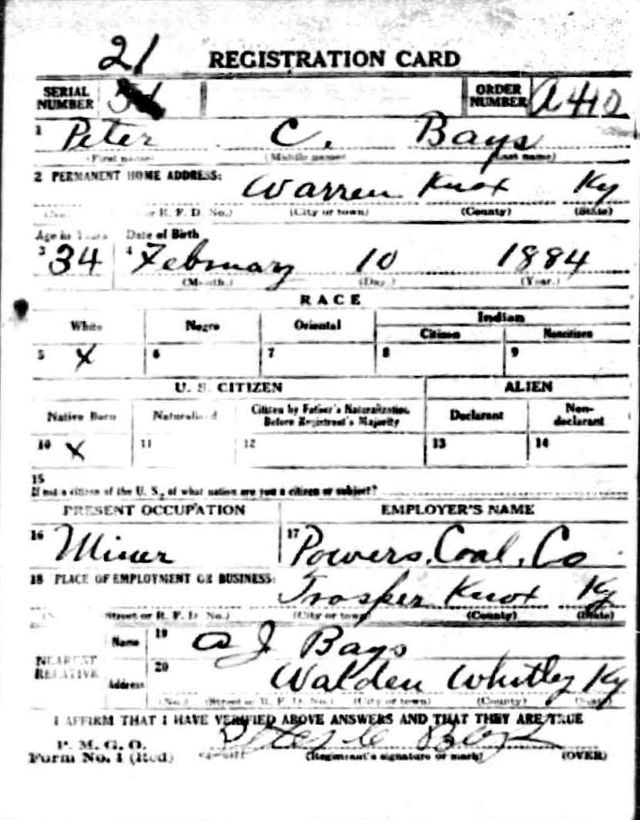 21
REGISTRATION CARD
SERIAL NUMBER
ORDER NUMBER A 410
1 Peter C. Bays
(First name) (Middle name) (Last name)
2 PERMANENT HOME ADDRESS: Warren Knox Ky
(No.) or R. F. D. No.) (City or town) (County) (State)
Age in Years Date of Birth
3 34 4 February 10 1884
(Month.) (Day.) (Year.)
RACE
White Negro Oriental Indian
Citizen Noncitizen
5 X 6 7 8 9
U. S. CITIZEN ALIEN
Native Born Naturalized Citizen by Father's Naturalization Before Registrant's Majority Declarant Non-declarant
10 X 11 12 13 14
15
If not a citizen of the U. S., of what nation are you a citizen or subject?
PRESENT OCCUPATION EMPLOYER'S NAME
16 Miner 17 Powers Coal Co
18 PLACE OF EMPLOYMENT OR BUSINESS:
Trosper Knox Ky
Street or R. F. D. No.) (City or town) (County) (State)
NEAREST RELATIVE
Name 19 A J Bays
Address 20 Walden Whitley Ky
(No.) (Street or R. F. D. No.) (City or town) (County) (State)
I AFFIRM THAT I HAVE VERIFIED ABOVE ANSWERS AND THAT THEY ARE TRUE
P. M. G. O.
Form No. 1 (Red) (Registrant's signature or mark) (OVER)